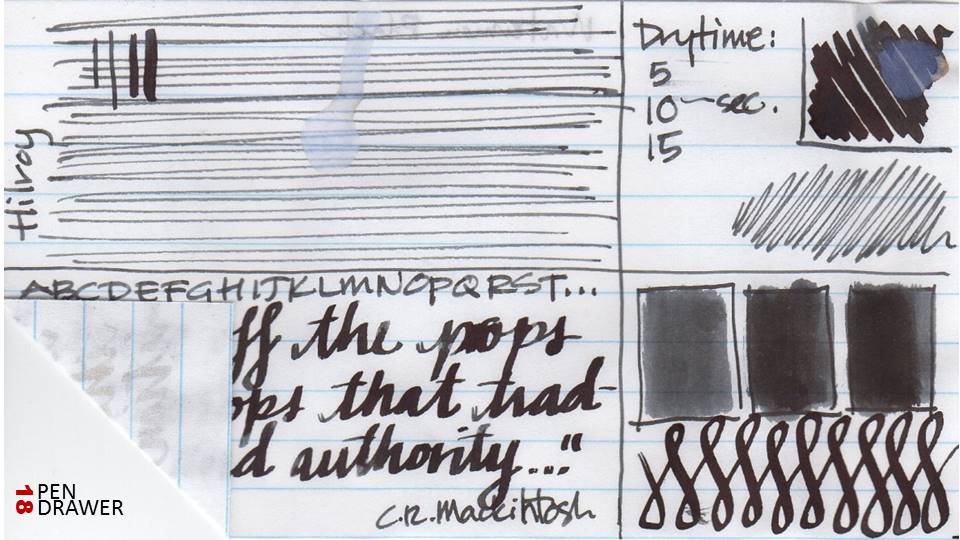 Hilroy
Drytime:
5
10 ~ sec.
15
ABCDEFGHIJKLMNOPQRST...
ff the pops
ops that trad-
d authority..."
C.R. Mackintosh
18 PEN
DRAWER